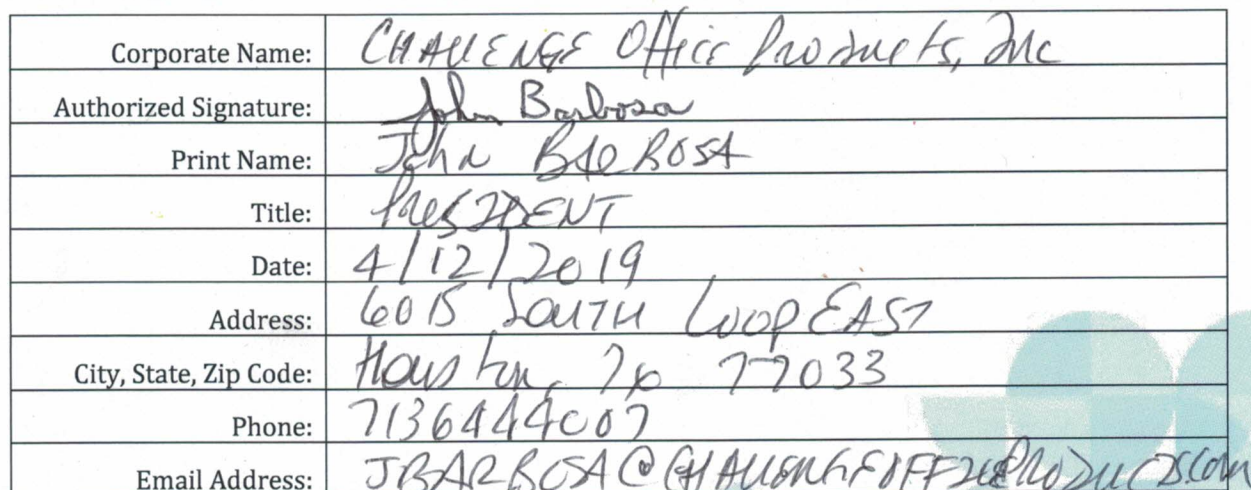 Corporate Name: CHALLENGE Office Products, Inc
Authorized Signature: John Barbosa
Print Name: John BARBOSA
Title: PRESIDENT
Date: 4/12/2019
Address: 6015 SOUTH LOOP EAST
City, State, Zip Code: Houston, Tx 77033
Phone: 7136444007
Email Address: JBARBOSA@CHALLENGEOFFICEPRODUCTS.COM